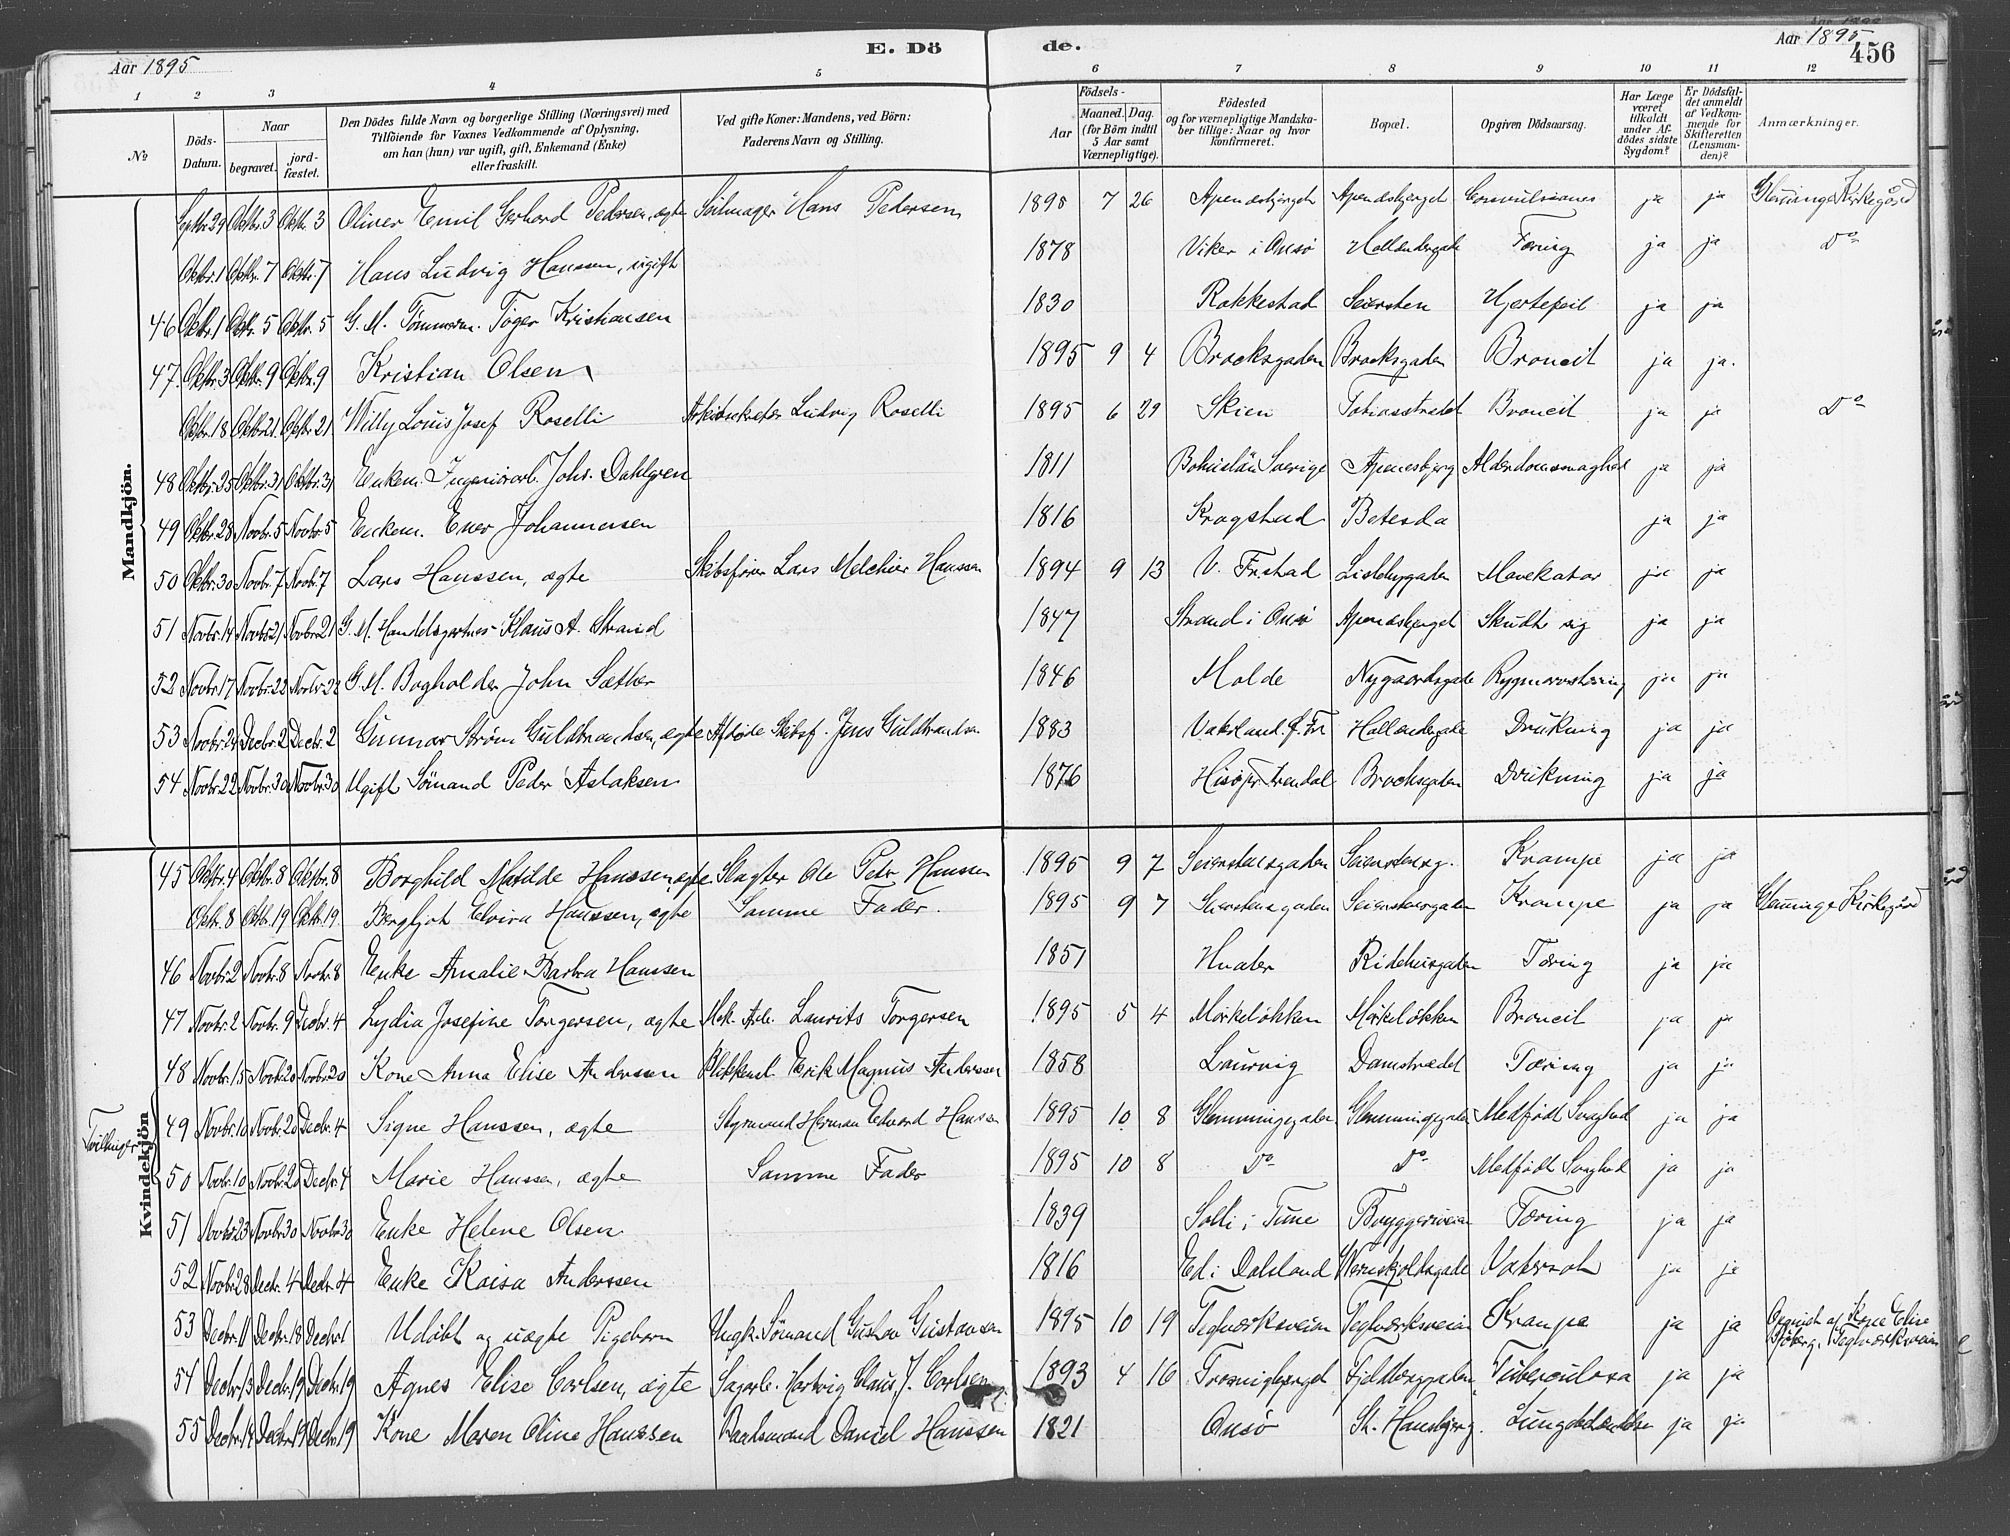 Aar 1895 E. Dö de. Aar 1895 456
1 2 3 4 5 6 7 8 9 10 11 12
№ Döds-Datum. Naar begravet. jord-fæstet. Den Dödes fulde Navn og borgerlige Stilling (Næringsvei) med Tilföiende for Voxnes Vedkommende af Oplysning, om han (hun) var ugift, gift, Enkemand (Enke) eller fraskilt. Ved gifte Koner: Mandens, ved Börn: Faderens Navn og Stilling. Aar Födsels- Maaned. Dag. (for Börn indtil 5 Aar samt Værnepligtige). Födested og for værnepligtige Mandska-ber tillige: Naar og hvor konfirmeret. Bopæl. Opgiven Dödsaarsag. Har Læge været tilkaldt under Af-dödes sidste Sygdom? Er Dödsfal-det anmeldt af Vedkom-mende for Skifteretten (Lensman-den)? Anmærkninger.
Mandkjön.
Septbr. 29 Oktbr. 3 Oktbr. 3 Oliver Emil Gerhard Pedersen, ægte Seilmager Hans Pedersen 1895 7 26 Apenæsbjerget Apenæsbjerget Convulsiones ja ja Glemminge Kirkegård
Oktbr. 1 Oktbr. 7 Oktbr. 7 Hans Ludvig Hanssen, ugift 1878 Viker i Onsö Hollændergade Tæring ja ja Do
46 Oktbr. 1 Oktbr. 5 Oktbr. 5 G. M. Tömmerm. Töger Kristiansen 1830 Rakkestad Seiersten Hjertefeil ja ja
47. Oktbr. 3 Oktbr. 9 Oktbr. 9 Kristian Olsen 1895 9 4 Brocksgaden Brocksgaden Broncit ja ja.
Oktbr. 18 Oktbr. 21. Oktbr. 21 Willy Louis Josef Roselli Ludvig Roselli 1895 6 29 Skien Tobiasstrædet Broncit ja ja Do
48 Oktbr. 25 Oktbr. 31 Oktbr. 31 Enkem. Johs. Dahlgren 1811 Bohuslän Sverige Apenesbjerg Alderdomssvaghed ja ja
49 Oktbr. 28 Novbr. 5 Novbr. 5 Enkem. Ener Johannesen 1816 Kragstad Betesda ja ja
50 Oktbr. 30 Novbr. 7 Novbr. 7 Lars Hanssen, ægte Skibsförer Lars Melchior Hanssen 1894 9 13 V. Frstad Lislebygaden Mavekatar ja ja
51 Novbr. 14 Novbr. 21 Novbr. 21 G. M. Handelsgartner Klaus A. Strand 1847 Strand i Onsö Apenæsbjerget Skudt sig ja ja
52 Novbr. 17 Novbr. 22 Novbr. 22 G. M. Bogholder John Sæther 1846 Molde Nygaardsgade Rygmarvstæring ja ja
53 Novbr. 24 Decbr. 2 Decbr. 2 Gunnar Ström Guldbrandsen, ægte Afdöde Skibsf. Jens Guldbrandsen 1883 Vaterland. f. Fr. Hollændergade Drukning ja ja
54 Novbr. 22 Novbr. 30 Novbr. 30 Ugift Sömand Peder Aslaksen 1876 Hisö pr. Arendal Brocksgaden Drukning ja ja
Kvindekjön
45 Oktbr. 4 Oktbr. 8 Oktbr. 8 Borghild Matilde Hanssen, ægte Slagter Ole Petr Hanssen 1895 9 7 Seierstensgaden Seierstensg. Krampe ja ja
Oktbr. 8 Oktbr. 19 Oktbr. 19. Bergljot Elvira Hanssen, ægte Samme Fader. 1895 9 7 Seierstensgaden Seierstensgaden Krampe ja ja Glemminge Kirkegård
46 Novbr. 2 Novbr. 8 Novbr. 8 Enke Amalie Barbra Hanssen 1851 Hvaler Ridehusgaden Tæring ja ja
47 Novbr. 2 Novbr. 9 Decbr. 4 Lydia Josefine Torgersen, ægte Mek. Arb. Laurits Torgersen 1895 5 4 Mörkelökken Mörkelökken Broncit ja ja
48 Novbr. 15 Novbr. 20 Novbr. 20 Kone Anna Elise Anderssen Blikkensl. Erik Magnus Anderssen 1858 Laurvig Damstrædet Tæring ja ja
Tvillinger
49 Novbr. 10 Novbr. 20 Decbr. 4 Signe Hanssen, ægte Styrmand Herman Edvard Hanssen 1895 10 8 Glemmingegaden Glemmingegaden Medfödt Svaghed ja ja
50 Novbr. 10 Novbr. 20 Decbr. 4 Marie Hanssen, ægte Samme Fader 1895 10 8 Do Do Medfödt Svaghed ja ja
51 Novbr. 23 Novbr. 30 Novbr. 30 Enke Helene Olsen 1839 Solli i Tune Bryggeriveien Tæring ja ja
52 Novbr. 28 Decbr. 4 Decbr. 4 Enke Kaisa Anderssen 1816 Ed i Dalsland Wernskjoldsgade Vatersot ja ja
53 Decbr. 11 Decbr. 18 Decbr. Udöbt og uægte Pigebarn Ungk. Sömand Gustav Gustavsen 1895 10 19 Teglværksveien Teglværksveien Krampe ja ja af Kone Elise Sjöberg, Teglværksveien
54 Decbr. 13 Decbr. 19 Decbr. 19 Agnes Elise Carlsen, ægte Sagarb. Hartvig Claus J. Carlsen 1893 4 16 Trosvigbjerget Fjeldberggaden Tuberculosa ja ja
55 Decbr. 14 Decbr. 19 Decbr. 19 Kone Maren Oline Hanssen Baadsmand Daniel Hanssen 1821 Onsö St. Hansbjerg. Lungebetændelse ja ja